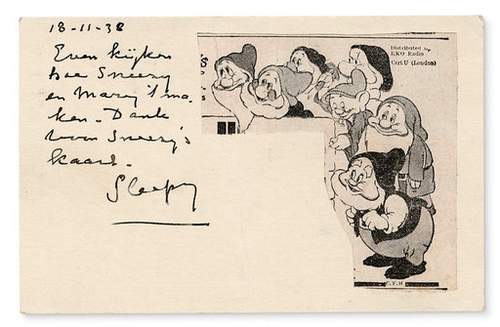 18-11-38
Even kijken
hoe Sneezy
en Mary 't ma
ken. Dank
voor Sneezy's
kaart.
Sleepy
Distributed by
RKO Radio
Cert U (London)